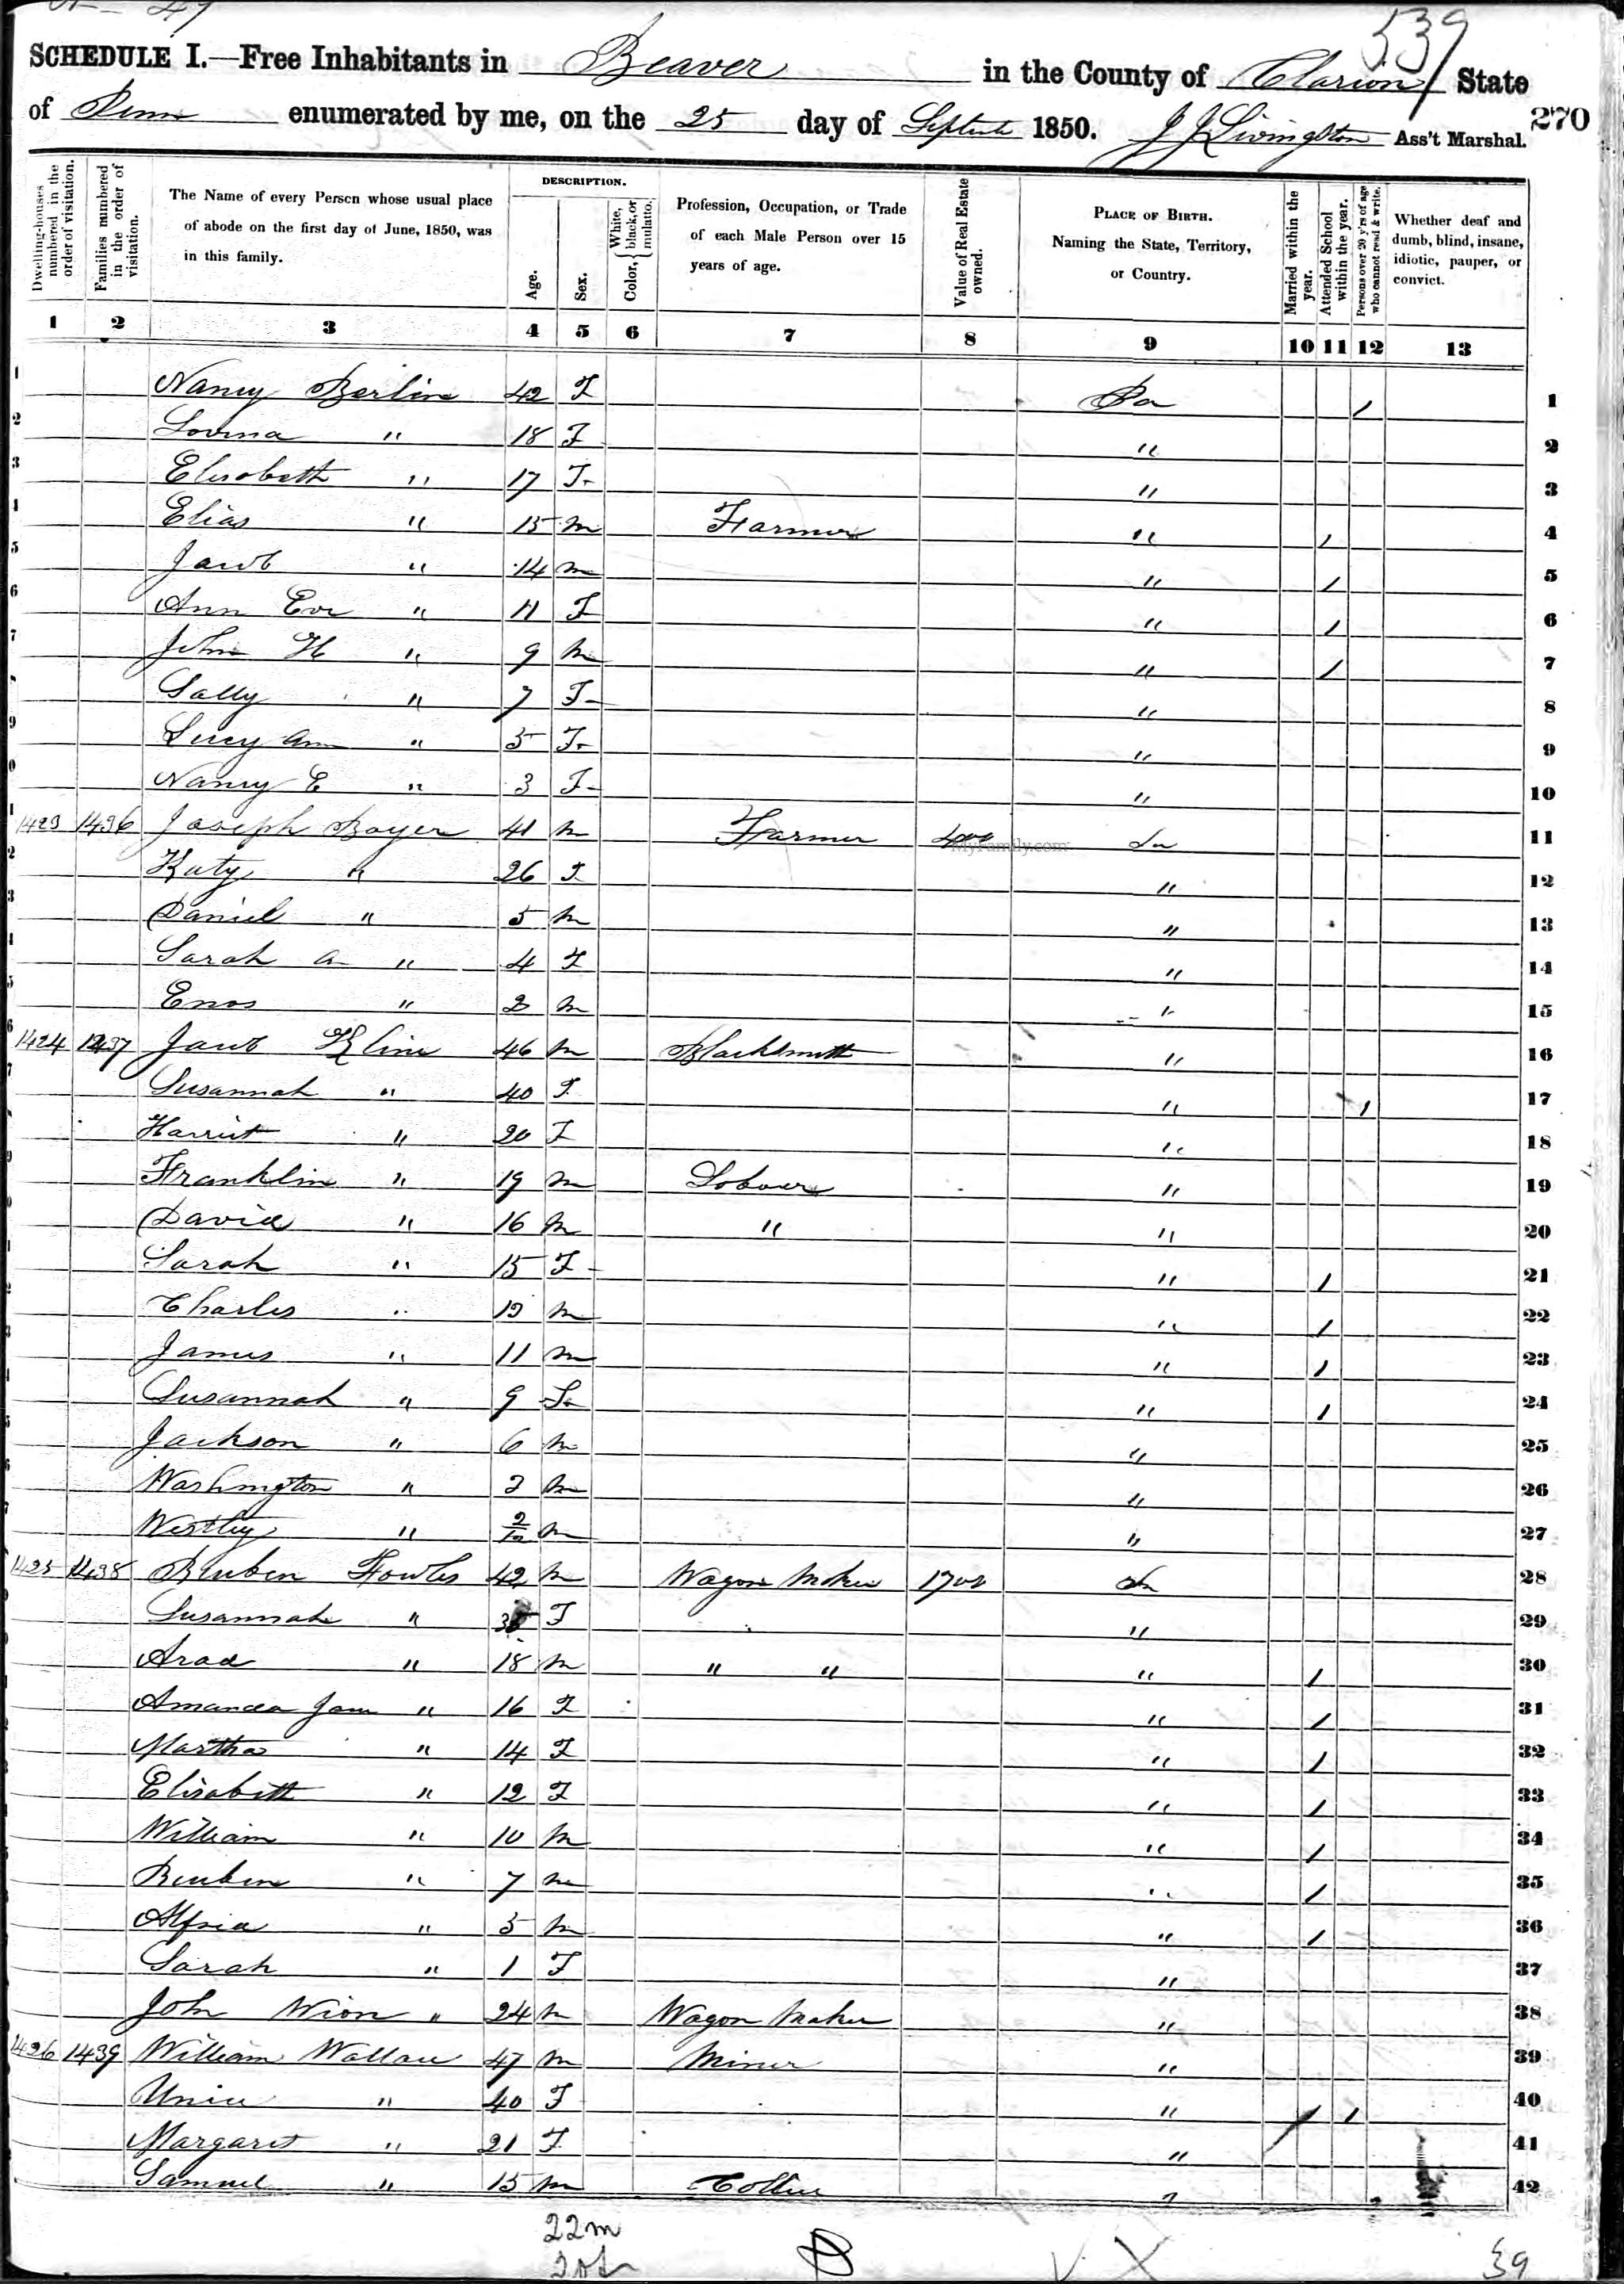 539
SCHEDULE I.—Free Inhabitants in Beaver in the County of Clarion State
of Penn enumerated by me, on the 25 day of Septembr 1850. J J Livingston Ass't Marshal. 270
Dwelling-houses numbered in the order of visitation.
Families numbered in the order of visitation.
The Name of every Person whose usual place of abode on the first day of June, 1850, was in this family.
DESCRIPTION.
Age.
Sex.
Color, { White, black, or mulatto.
Profession, Occupation, or Trade of each Male Person over 15 years of age.
Value of Real Estate owned.
PLACE OF BIRTH. Naming the State, Territory, or Country.
Married within the year.
Attended School within the year.
Persons over 20 y'rs of age who cannot read & write.
Whether deaf and dumb, blind, insane, idiotic, pauper, or convict.
1 2 3 4 5 6 7 8 9 10 11 12 13
1 Nancy Berlin 42 F Pa / 1
2 Lovina " 18 F " 2
3 Elisabeth " 17 F " 3
Elias " 15 m Farmer " / 4
5 Jacob " 14 m " / 5
6 Ann Eve " 11 F " / 6
7 John H " 9 m " / 7
Sally " 7 F " 8
9 Lucy Ann " 5 F " 9
Nancy E " 3 F " 10
1423 1436 Joseph Boyer 41 m Farmer 400 do 11
MyFamily.com
Katy " 26 F " 12
Daniel " 5 m " 13
Sarah A " 4 F " 14
Enos " 2 m " 15
1424 1437 Jacob Kline 46 m Blacksmith " 16
Susannah " 40 F " / 17
Harriet " 20 F " 18
Franklin " 19 m Laborer " 19
David " 16 m " " 20
Sarah " 15 F " / 21
Charles " 13 m " / 22
James " 11 m " / 23
Susannah " 9 F " / 24
Jackson " 6 m " 25
Washington " 3 m " 26
Westley " 2/12 m " 27
1425 1438 Reuben Fowles 42 m Wagon Maker 1700 do 28
Susannah " F " 29
Arad " 18 m " " " / 30
Amanda Jane " 16 F " / 31
Martha " 14 F " / 32
Elisabeth " 12 F " / 33
William " 10 m " / 34
Reuben " 7 m " / 35
Alfred " 5 m " / 36
Sarah " 1 F " 37
John Wion " 24 m Wagon Maker " 38
1426 1439 William Wallace 47 m Miner " 39
Unice " 40 F " / / 40
Margaret " 21 F " 41
Samuel " 15 m Collier " 42
22m
20f
39